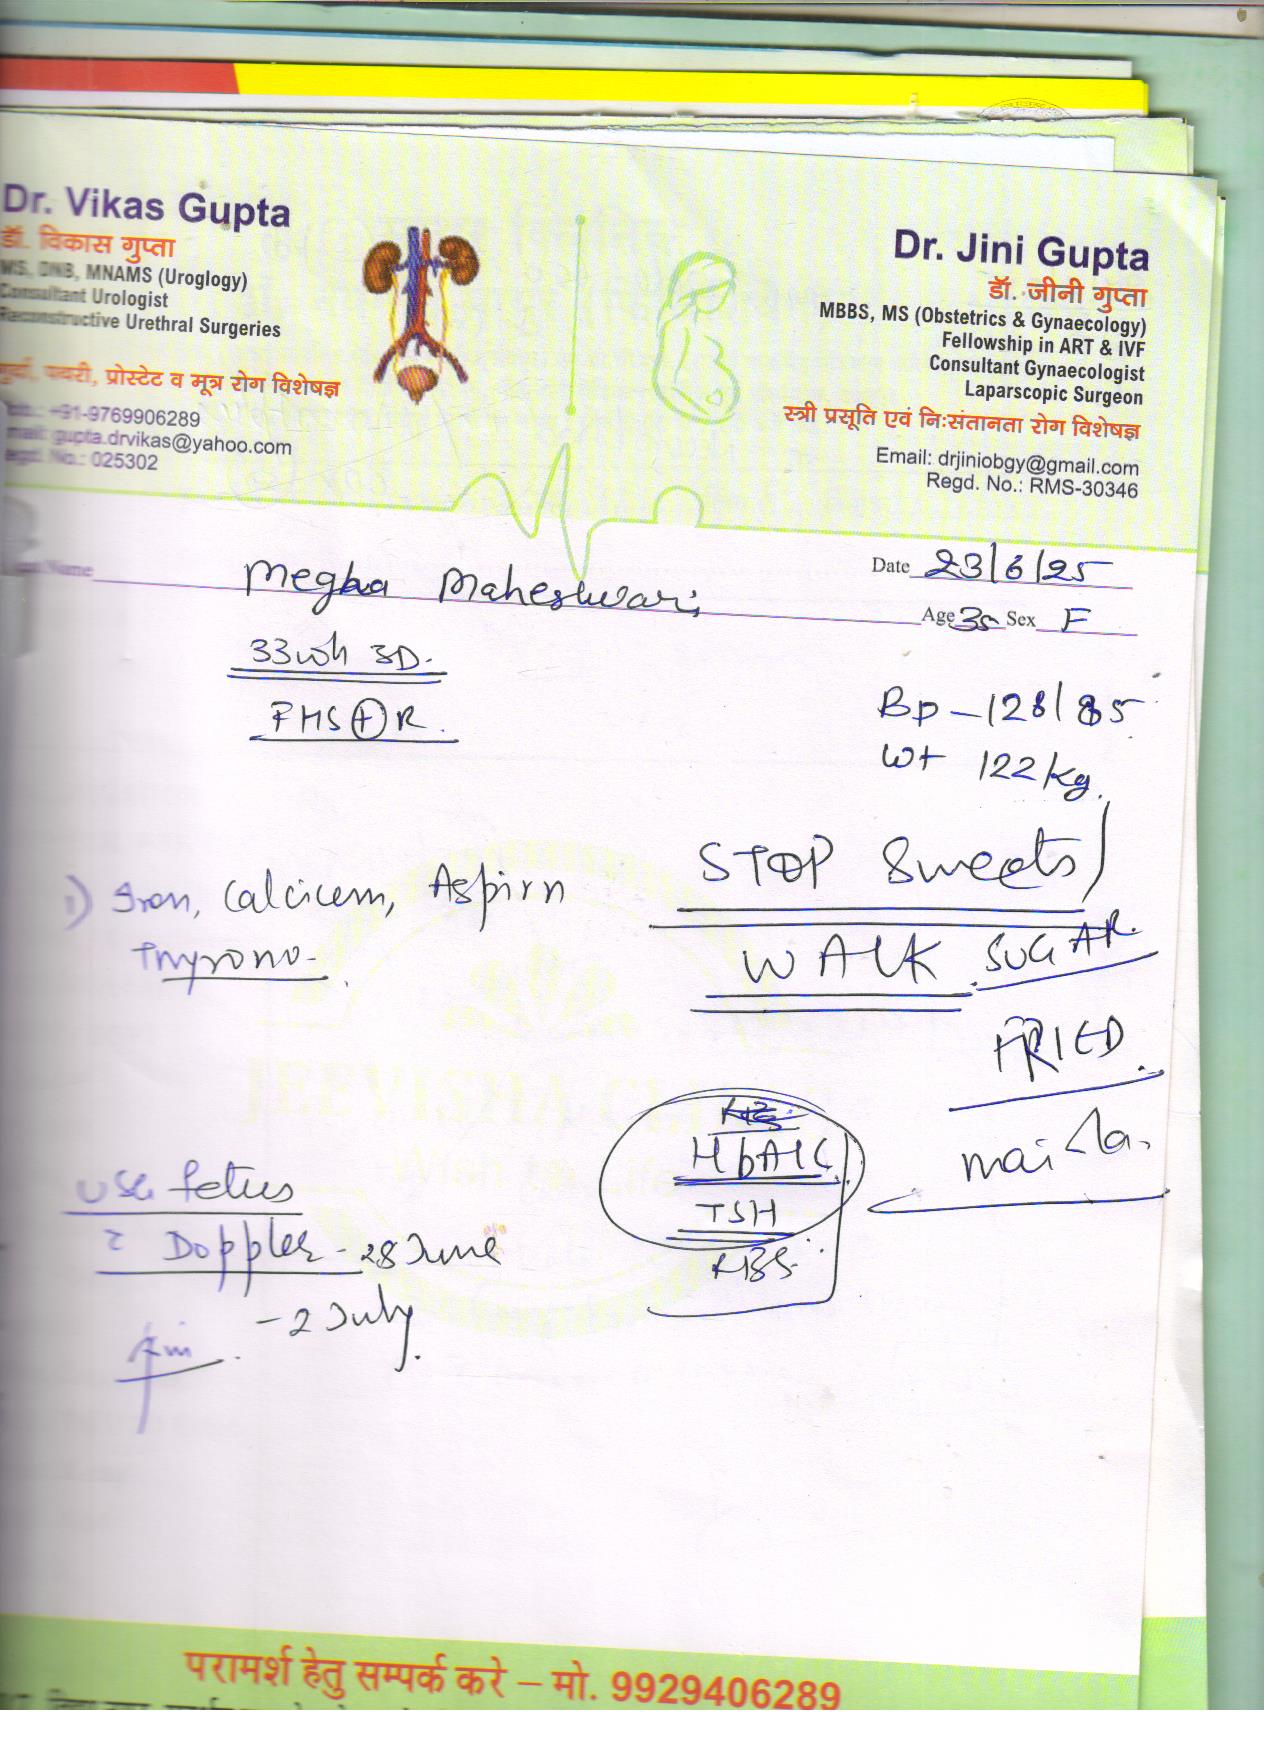 Dr. Vikas Gupta
डॉ. विकास गुप्ता
MS, DNB, MNAMS (Uroglogy)
Consultant Urologist
Reconstructive Urethral Surgeries
पथरी, प्रोस्टेट व मूत्र रोग विशेषज्ञ
+91-9769906289
mail: gupta.drvikas@yahoo.com
Regd. No.: 025302
Dr. Jini Gupta
डॉ. जीनी गुप्ता
MBBS, MS (Obstetrics & Gynaecology)
Fellowship in ART & IVF
Consultant Gynaecologist
Laparscopic Surgeon
स्त्री प्रसूति एवं निःसंतानता रोग विशेषज्ञ
Email: drjiniobgy@gmail.com
Regd. No.: RMS-30346
Name Megha Maheshwari
Date 23/6/25
Age Sex F
33wk 3D.
FHS + R.
Bp - 128/85
Wt 122 kg.
1) Iron, Calcicem, Aspirn
Thyrono-
STOP Sweets/
SUGAR
WALK
FRIED
maida.
HbA1C
TSH
RBS
USG fetus
c Doppler - 28 June
- 2 July.
परामर्श हेतु सम्पर्क करे – मो. 9929406289